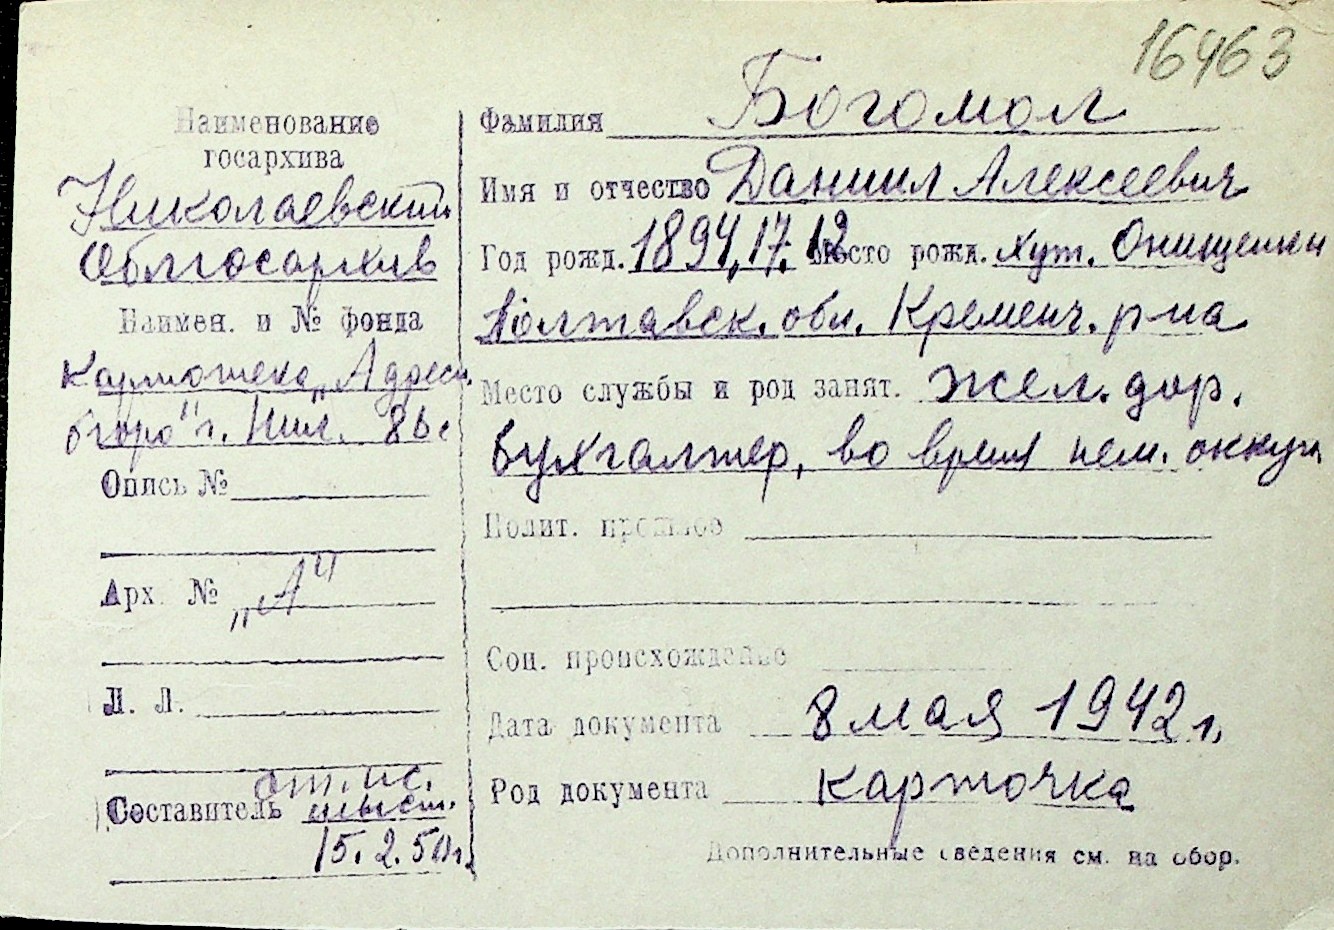 16463
Наименование
госархива
Николаевский
Облгосархив
Наимен. и № фонда
Картотека „Адресн.
бюро" г. Ник.
Опись №
Арх. № „А"
Л. Л.
Составитель
15.2.50 г.
Фамилия Богомол
Имя и отчество Даниил Алексеевич
Год рожд. 1894, 17. 12 Место рожд. хут. Онищенки
Полтавск. обл. Кременч. р-на
Место службы и род занят. жел. дор.
бухгалтер, во время нем. оккуп
Полит. прошлое
Соц. происхождение
Дата документа 8 мая 1942 г.
Род документа карточка
Дополнительные сведения см. на обор.